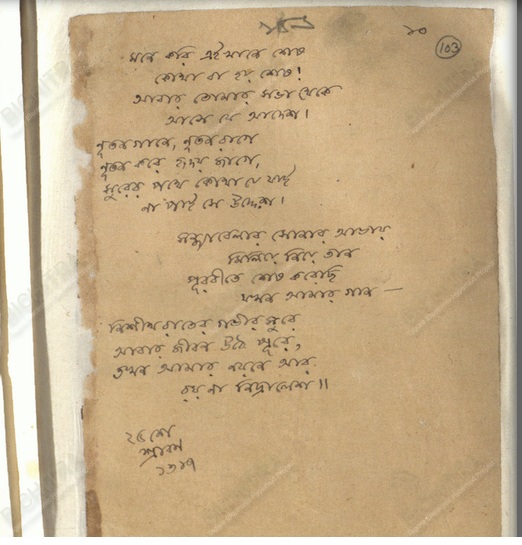 103
মনে করি এইখানে শেষ
কোথা বা হয় শেষ!
আবার তোমার সভা থেকে
আসে যে আদেশ।
নূতন গানে, নূতন রাগে
নূতন করে হৃদয় জাগে,
সুরের পথে কোথা যে যাই
না পাই সে উদ্দেশ।
সন্ধ্যাবেলার সোনার আভায়
মিলিয়ে নিয়ে তান
পূরবীতে শেষ করেছি
যখন আমার গান —
নিশীথ রাতের গভীর সুরে
আবার জীবন উঠে পূরে,
তখন আমার নয়নে আর
রয় না নিদ্রালেশ॥
২৫ শে
শ্রাবণ
১৩১৭